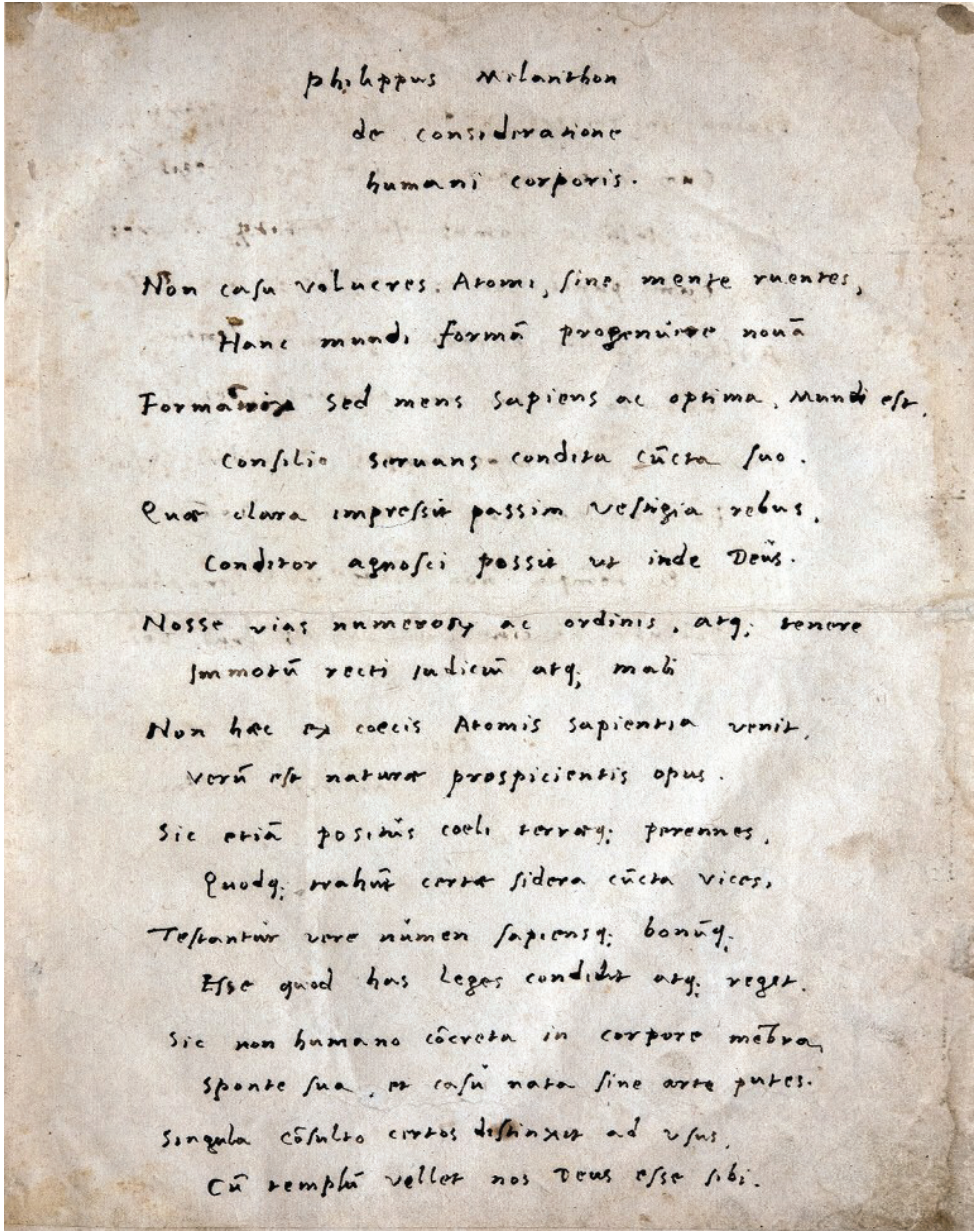 Philippus Melanthon
de consideratione
humani corporis.
Non casu volucres Atomi, sine mente ruentes,
Hanc mundi formā progenúere nouā
Formatrix Sed mens sapiens ac optima, Mundi est,
Consilio seruans condita cūcta suo.
Quæ clara impressit passim vestigia rebus,
Conditor agnosci possit ut inde Deus.
Nosse vias numerorū ac ordinis, atq; tenere
Immotū recti iudiciū atq; mali
Non hæc ex coecis Atomis sapientia venit,
Verū est naturæ prospicientis opus.
Sic etiā positus coeli terræq; perennes,
Quodq; trahūt certæ sidera cūcta vices,
Testantur vere númen sapiensq; bonūq;
Esse quod has leges condidit atq; reget.
Sic non humano cōcreta in corpore mēbra,
Sponte sua, et casu nata sine arte putes.
Singula cōsulto certos distinxit ad usus,
Cū templū vellet nos Deus esse sibi.